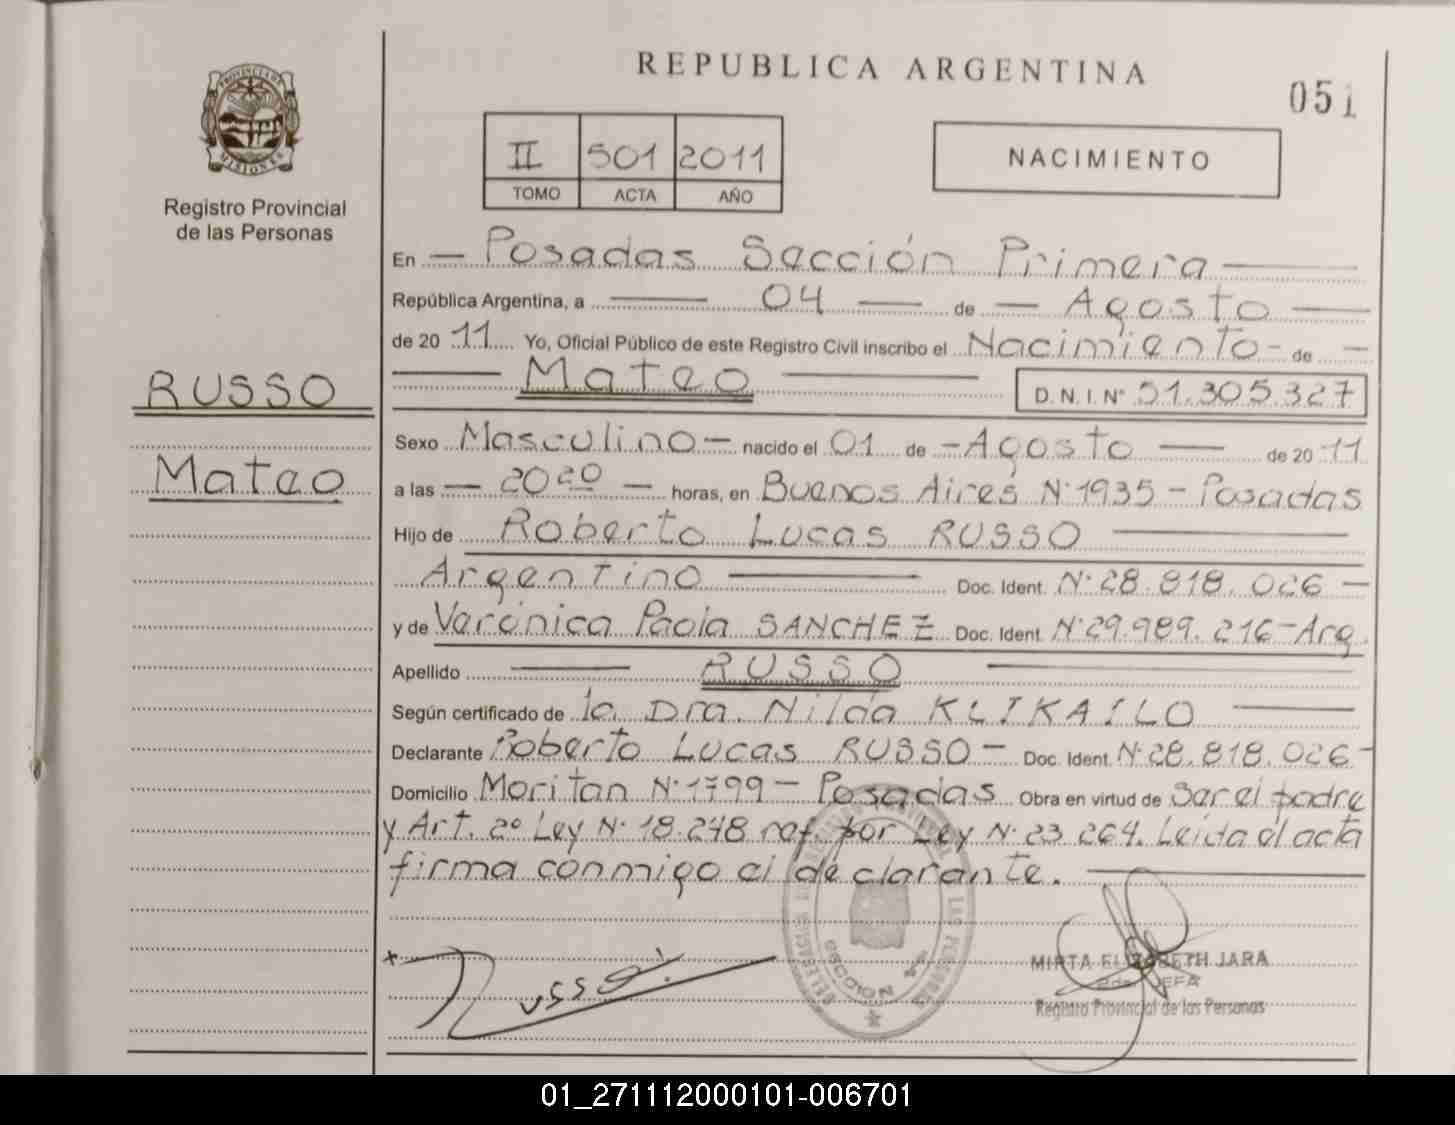 REPUBLICA ARGENTINA
051
PROVINCIA DE
MISIONES
Registro Provincial
de las Personas
II 501 2011
TOMO ACTA AÑO
NACIMIENTO
En — Posadas Sección Primera —
República Argentina, a — 04 — de — Agosto —
de 20 11 Yo, Oficial Público de este Registro Civil inscribo el Nacimiento - de —
— Mateo — D. N. I. N° 51.305.327
RUSSO
Mateo
Sexo Masculino — nacido el 01 de — Agosto — de 20 11
a las — 20 20 — horas, en Buenos Aires N° 1935 - Posadas
Hijo de Roberto Lucas RUSSO —
Argentino — Doc. Ident. N° 28.818.026 —
y de Verónica Paola SANCHEZ Doc. Ident. N° 29.989.216 - Arg.
Apellido — RUSSO —
Según certificado de la Dra. Nilda KLIKAILO —
Declarante Roberto Lucas RUSSO — Doc. Ident. N° 28.818.026 -
Domicilio Moritan N° 1799 — Posadas Obra en virtud de Ser el padre
y Art. 2° Ley N° 18.248 ref. por Ley N° 23.264. Leída el acta
firma conmigo el declarante. —
Russo
MIRTA ELIZABETH JARA
2da. JEFA
Registro Provincial de las Personas
01_271112000101-006701